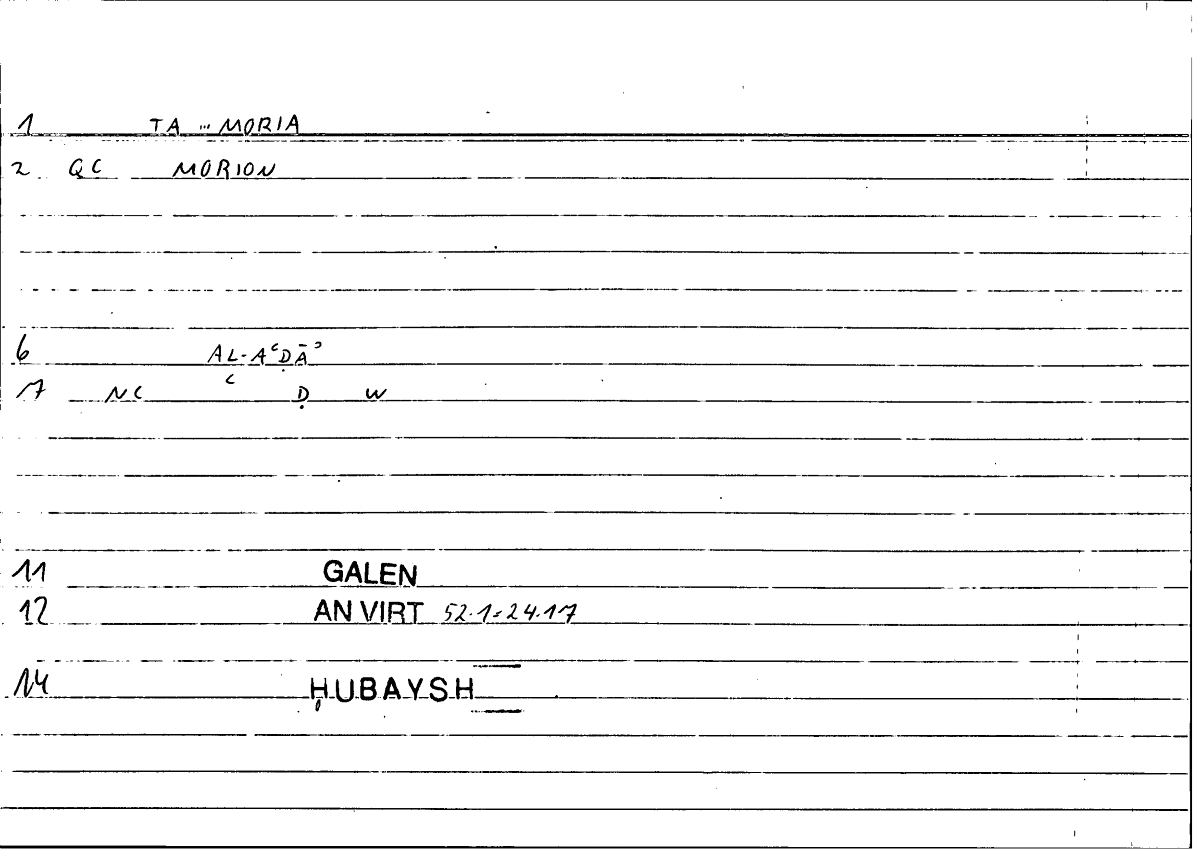 1 TA ... MORIA
2 QC MORION
6 AL-AʿḌĀʾ
7 NC ʿ Ḍ W
11 GALEN
12 AN VIRT 52.1=24.17
14 ḤUBAYSH